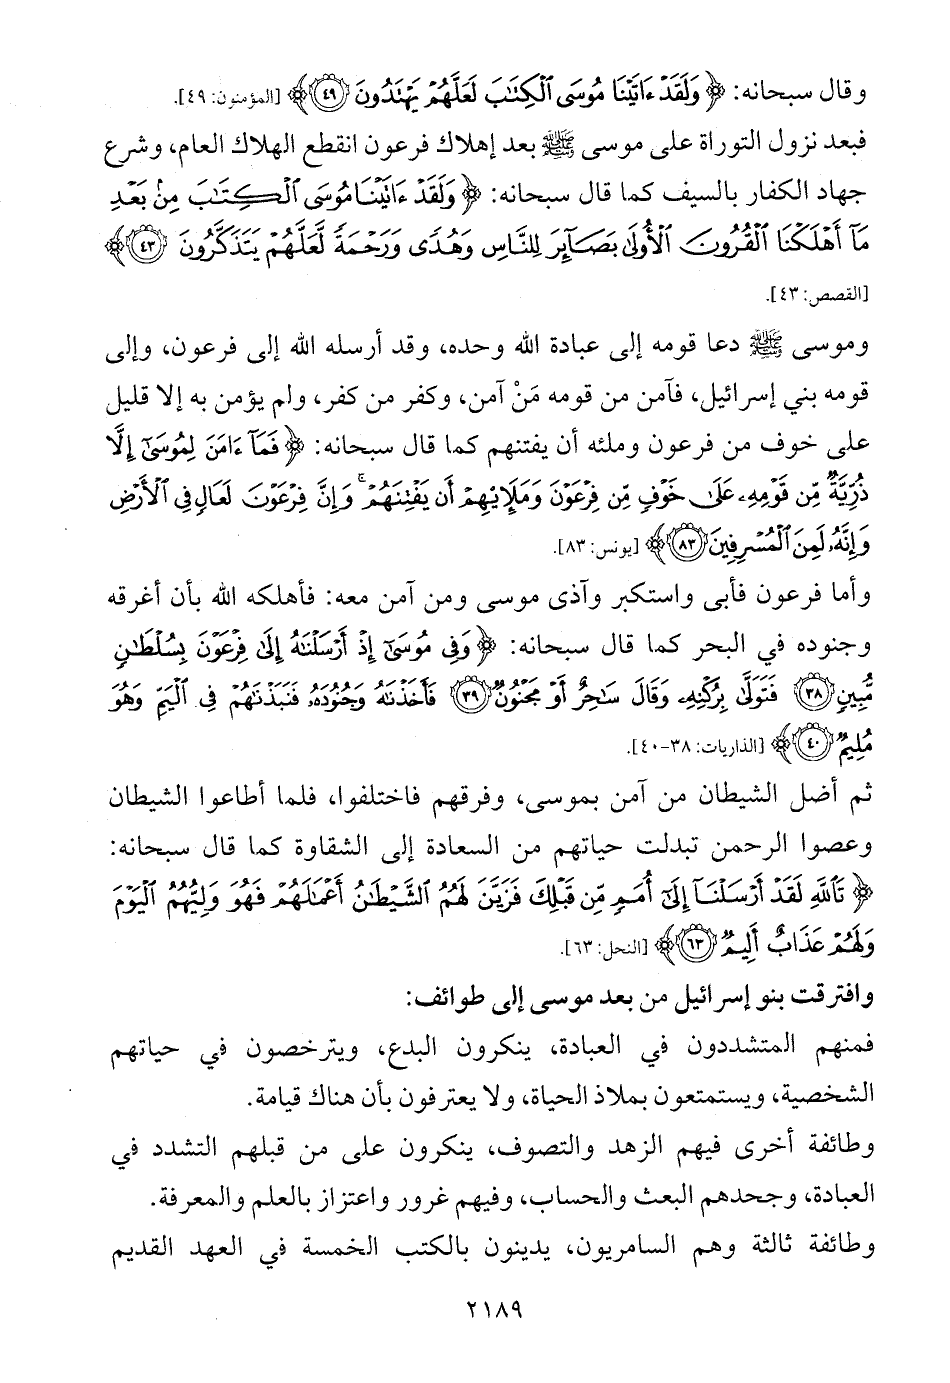 وقال سبحانه: ﴿ وَلَقَدْ ءَاتَيْنَا مُوسَى ٱلْكِتَٰبَ لَعَلَّهُمْ يَهْتَدُونَ ٤٩ ﴾ [المؤمنون: ٤٩].
فبعد نزول التوراة على موسى ﷺ بعد إهلاك فرعون انقطع الهلاك العام، وشرع
جهاد الكفار بالسيف كما قال سبحانه: ﴿ وَلَقَدْ ءَاتَيْنَا مُوسَى ٱلْكِتَٰبَ مِنۢ بَعْدِ
مَآ أَهْلَكْنَا ٱلْقُرُونَ ٱلْأُولَىٰ بَصَآئِرَ لِلنَّاسِ وَهُدًى وَرَحْمَةً لَّعَلَّهُمْ يَتَذَكَّرُونَ ٤٣ ﴾
[القصص: ٤٣].
وموسى ﷺ دعا قومه إلى عبادة الله وحده، وقد أرسله الله إلى فرعون، وإلى
قومه بني إسرائيل، فآمن من قومه مَنْ آمن، وكفر من كفر، ولم يؤمن به إلا قليل
على خوف من فرعون وملئه أن يفتنهم كما قال سبحانه: ﴿ فَمَآ ءَامَنَ لِمُوسَىٰٓ إِلَّا
ذُرِّيَّةٌ مِّن قَوْمِهِۦ عَلَىٰ خَوْفٍ مِّن فِرْعَوْنَ وَمَلَإِي۟هِمْ أَن يَفْتِنَهُمْ ۚ وَإِنَّ فِرْعَوْنَ لَعَالٍ فِى ٱلْأَرْضِ
وَإِنَّهُۥ لَمِنَ ٱلْمُسْرِفِينَ ٨٣ ﴾ [يونس: ٨٣].
وأما فرعون فأبى واستكبر وآذى موسى ومن آمن معه: فأهلكه الله بأن أغرقه
وجنوده في البحر كما قال سبحانه: ﴿ وَفِى مُوسَىٰٓ إِذْ أَرْسَلْنَٰهُ إِلَىٰ فِرْعَوْنَ بِسُلْطَٰنٍ
مُّبِينٍ ٣٨ فَتَوَلَّىٰ بِرُكْنِهِۦ وَقَالَ سَٰحِرٌ أَوْ مَجْنُونٌ ٣٩ فَأَخَذْنَٰهُ وَجُنُودَهُۥ فَنَبَذْنَٰهُمْ فِى ٱلْيَمِّ وَهُوَ
مُلِيمٌ ٤٠ ﴾ [الذاريات: ٣٨-٤٠].
ثم أضل الشيطان من آمن بموسى، وفرقهم فاختلفوا، فلما أطاعوا الشيطان
وعصوا الرحمن تبدلت حياتهم من السعادة إلى الشقاوة كما قال سبحانه:
﴿ تَٱللَّهِ لَقَدْ أَرْسَلْنَآ إِلَىٰٓ أُمَمٍ مِّن قَبْلِكَ فَزَيَّنَ لَهُمُ ٱلشَّيْطَٰنُ أَعْمَٰلَهُمْ فَهُوَ وَلِيُّهُمُ ٱلْيَوْمَ
وَلَهُمْ عَذَابٌ أَلِيمٌ ٦٣ ﴾ [النحل: ٦٣].
وافترقت بنو إسرائيل من بعد موسى إلى طوائف:
فمنهم المتشددون في العبادة، ينكرون البدع، ويترخصون في حياتهم
الشخصية، ويستمتعون بملاذ الحياة، ولا يعترفون بأن هناك قيامة.
وطائفة أخرى فيهم الزهد والتصوف، ينكرون على من قبلهم التشدد في
العبادة، وجحدهم البعث والحساب، وفيهم غرور واعتزاز بالعلم والمعرفة.
وطائفة ثالثة وهم السامريون، يدينون بالكتب الخمسة في العهد القديم
٢١٨٩